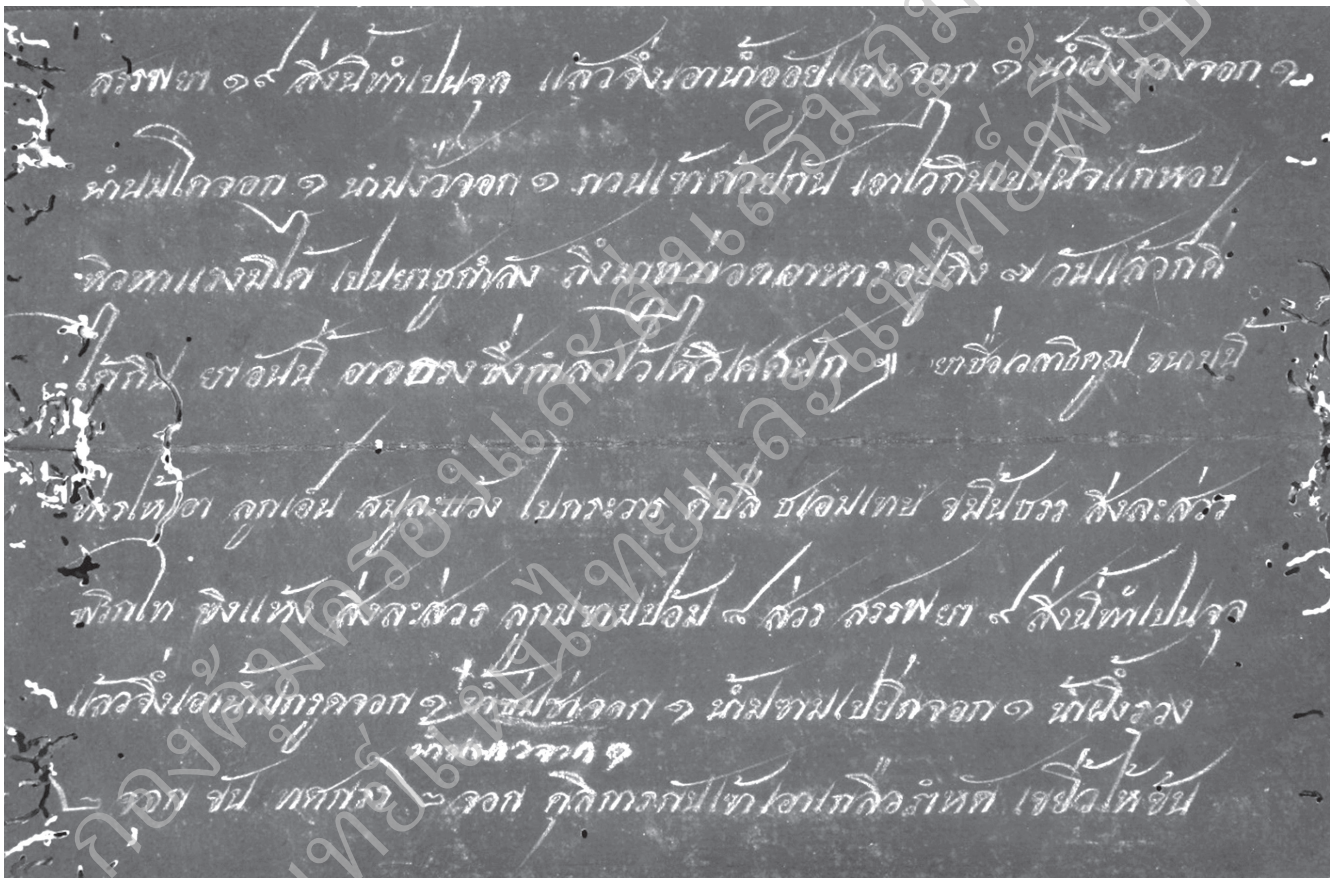 สรรพยา ๑๙ สิ่งนี้ทำเปนจุล แล้วจึ่งเอาน้ำอ้อยแดงจอก ๑ น้ำผึ้งรวงจอก ๑
น้ำนมโคจอก ๑ น้ำมงั่วจอก ๑ กวนเข้าด้วยกัน เอาไว้กินเปนนิจแก้หอบ
หิวหาแรงมิได้ เปนยาชูกำลัง ถึงมาทว่าอดอาหารอยู่ถึง ๗ วันแล้วก็ดี
ได้กิน ยาอันนี้ อาจทรงซึ่งกำลังไว้ได้วิเสศนัก ยาชื่อเวลาธิคุณ ขนานนี้
ท่านให้เอา ลูกเอ็น สมุละแว้ง ใบกระวาน ดีปลี ชเอมเทษ ขมิ้นธรร สิ่งละส่วร
พริกไท ขิงแห้ง สิ่งละส่วร ลูกมขามป้อม ๘ ส่วร สรรพยา ๙ สิ่งนี้ทำเปนจุล
แล้วจึ่งเอาน้ำมกรูดจอก ๑ น้ำซมซ่าจอก ๑ น้ำมขามเปียกจอก ๑ น้ำผึ้งรวง
น้ำมนาวจอก ๑
๒ จอก ๒ จอก คุลีการกันเข้าเอาเกลือรำหัด เขยื้อให้ขัน
กองคุ้มครอง